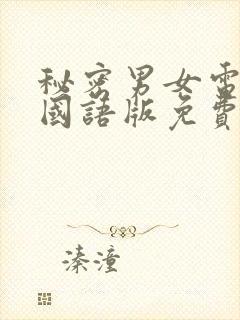 秘密男女電
國語版免費
溱潼